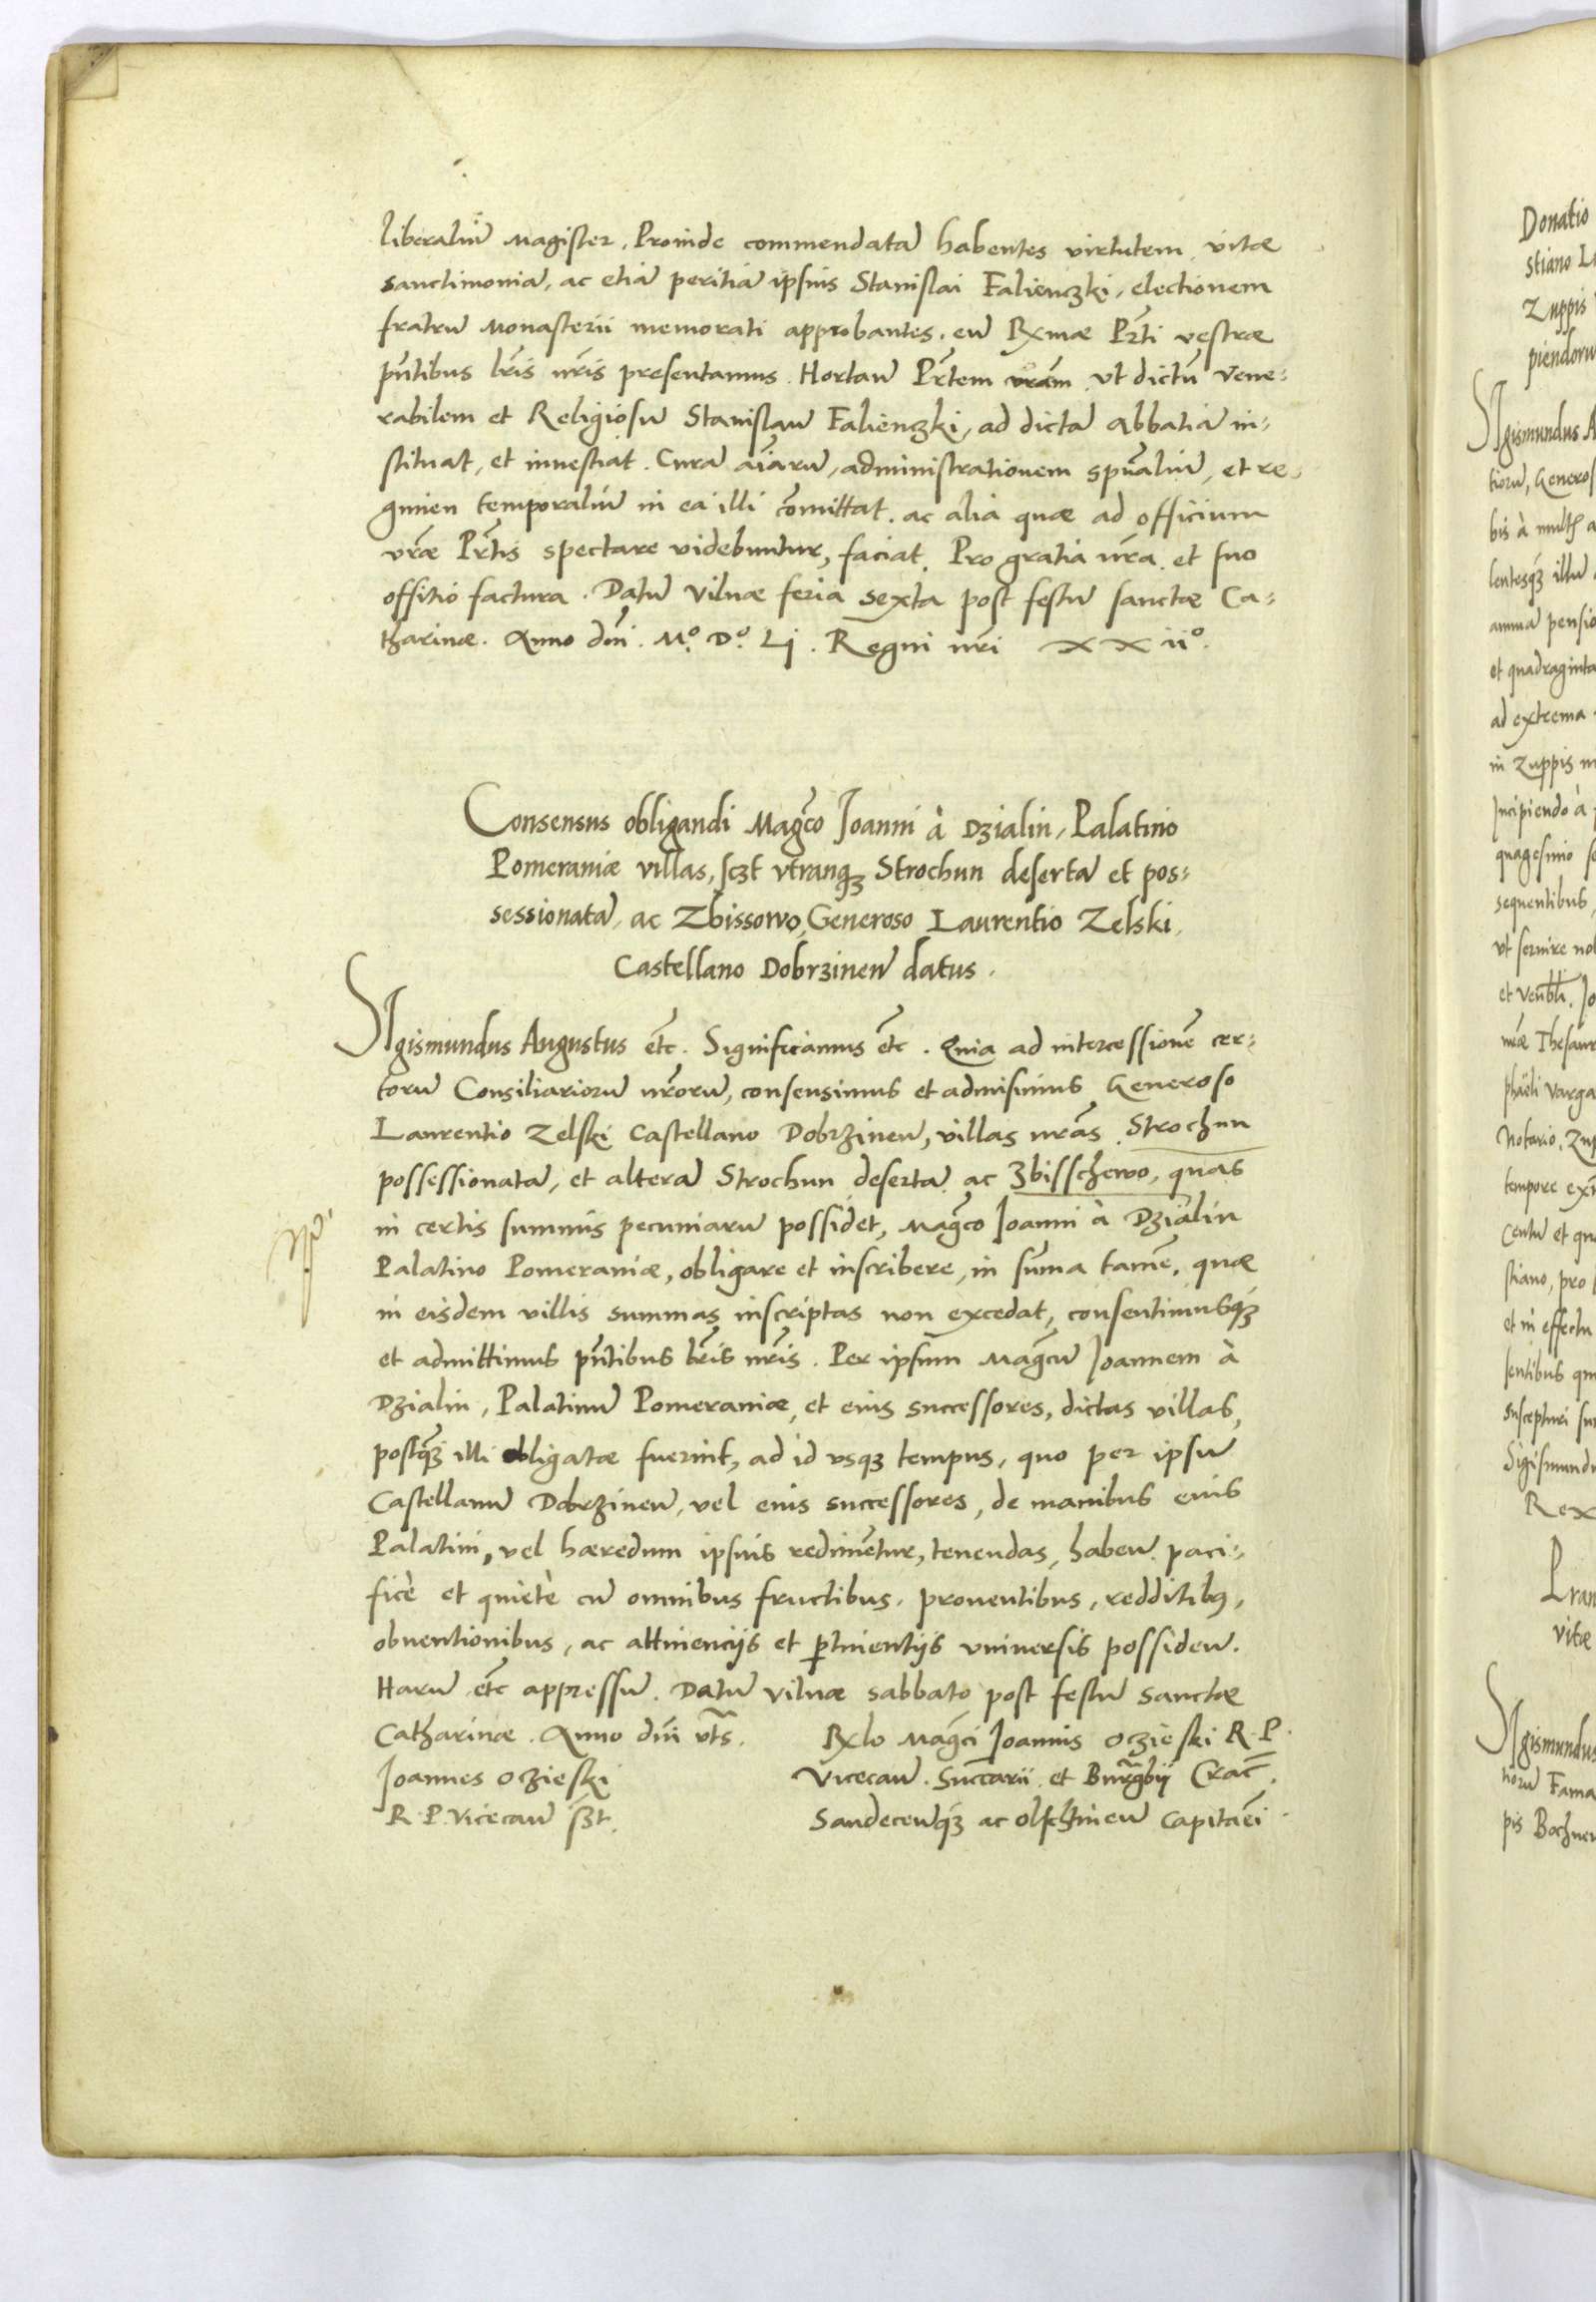 liberaliũ Magister. Proinde commendatã habentes virtutem, vitæ
sanctimoniã, ac etiã peritiã ipsius Stanislai Falienczki, electionem
fratrũ Monasterii memorati approbantes, eũ Rxmæ Prti vestræ
pñtibus lris nris presentamus. Hortañ Prtem vrãm, vt dictũ Vene-
rabilem et Religiosũ Stanislaũ Falienczki, ad dictã Abbatiã in-
stituat, et inuestiat. Curã aiarũ, administrationem spualiũ, et re-
gimen temporaliũ in ea illi cõmittat, ac alia quæ ad officium
vræ Prtis spectare videbuntur, faciat. Pro gratia nra, et suo
offitio factura. Datũ Vilnæ feria sexta post festũ sanctæ Ca-
tharinæ. Anno dni. Mº. Dº. Lj. Regni nri XXiiº.
Consensus obligandi Magco Joanni à Dzialin, Palatino
Pomeraniæ villas, sczt vtranqȝ Strochun desertã et pos-
sessionatã, ac Zbissowo, Generoso Laurentio Zelski,
Castellano Dobrzineñ datus.
Sigismundus Augustus etc. Significamus etc. Quia ad intercessionẽ cer-
torũ Consiliariorũ nrorũ, consensimus et admisimus Generoso
Laurentio Zelski Castellano Dobrzineñ, villas nras Strochun
possessionatã, et alterã Strochun desertã ac Zbisschewo, quas
in certis summis pecuniarũ possidet, Magco Joanni à Dzialin
Palatino Pomeraniæ, obligare et inscribere, in sũma tamẽ, quæ
in eisdem villis summas inscriptas non excedat, consentimusqȝ
et admittimus pñtibus lris nris. Per ipsum Magcũ Joannem à
Dzialin, Palatinũ Pomeraniæ, et eius successores, dictas villas,
postqȝ illi obligatæ fuerint, ad id vsqȝ tempus, quo per ipsũ
Castellanũ Dobrzineñ, vel eius successores, de manibus eius
Palatini, vel hæredum ipsius redimẽtur, tenendas, habeñ. paci-
ficè et quietè cũ omnibus fructibus, prouentibus, redditibȝ,
obuentionibus, ac attinenciis et ptinentiis vniuersis possideñ.
Harũ etc appressũ. Datũ Vilnæ sabbato post festũ sanctæ
Catharinæ. Anno dni vts. Rxlo Magci Joannis Oczieski R. P.
Joannes Oczieski Vicecañ. Succarii et Burgbii Crac̃.
R. P. Vicecañ sszt. Sandeceñqȝ ac Olschtineñ Capitãei.
Donatio
stiano
Zuppis
Sigismundus A
tiorũ, Generos
bis à
lentesqȝ illũ
annuã pensio
et quadraginta
ad extrema
in Zuppis
Incipiendo à
quagesimo
sequentibus
vt seruire
Notario.
tempore
centũ et
stiano, pro
et in effectu
sentibus
Rex
vitæ
Sigismundus
tiorũ Fama
pis